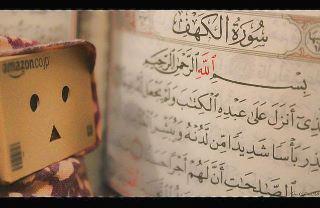 amazon.co.jp
سُورَةُ الْكَهْفِ
بِسْمِ اللَّهِ الرَّحْمَٰنِ الرَّحِيمِ
أَنزَلَ عَلَىٰ عَبْدِهِ الْكِتَٰبَ وَلَمْ يَجْعَل
بَأْسًا شَدِيدًا مِّن لَّدُنْهُ وَيُبَشِّرَ
الصَّٰلِحَٰتِ أَنَّ لَهُمْ أَجْرًا